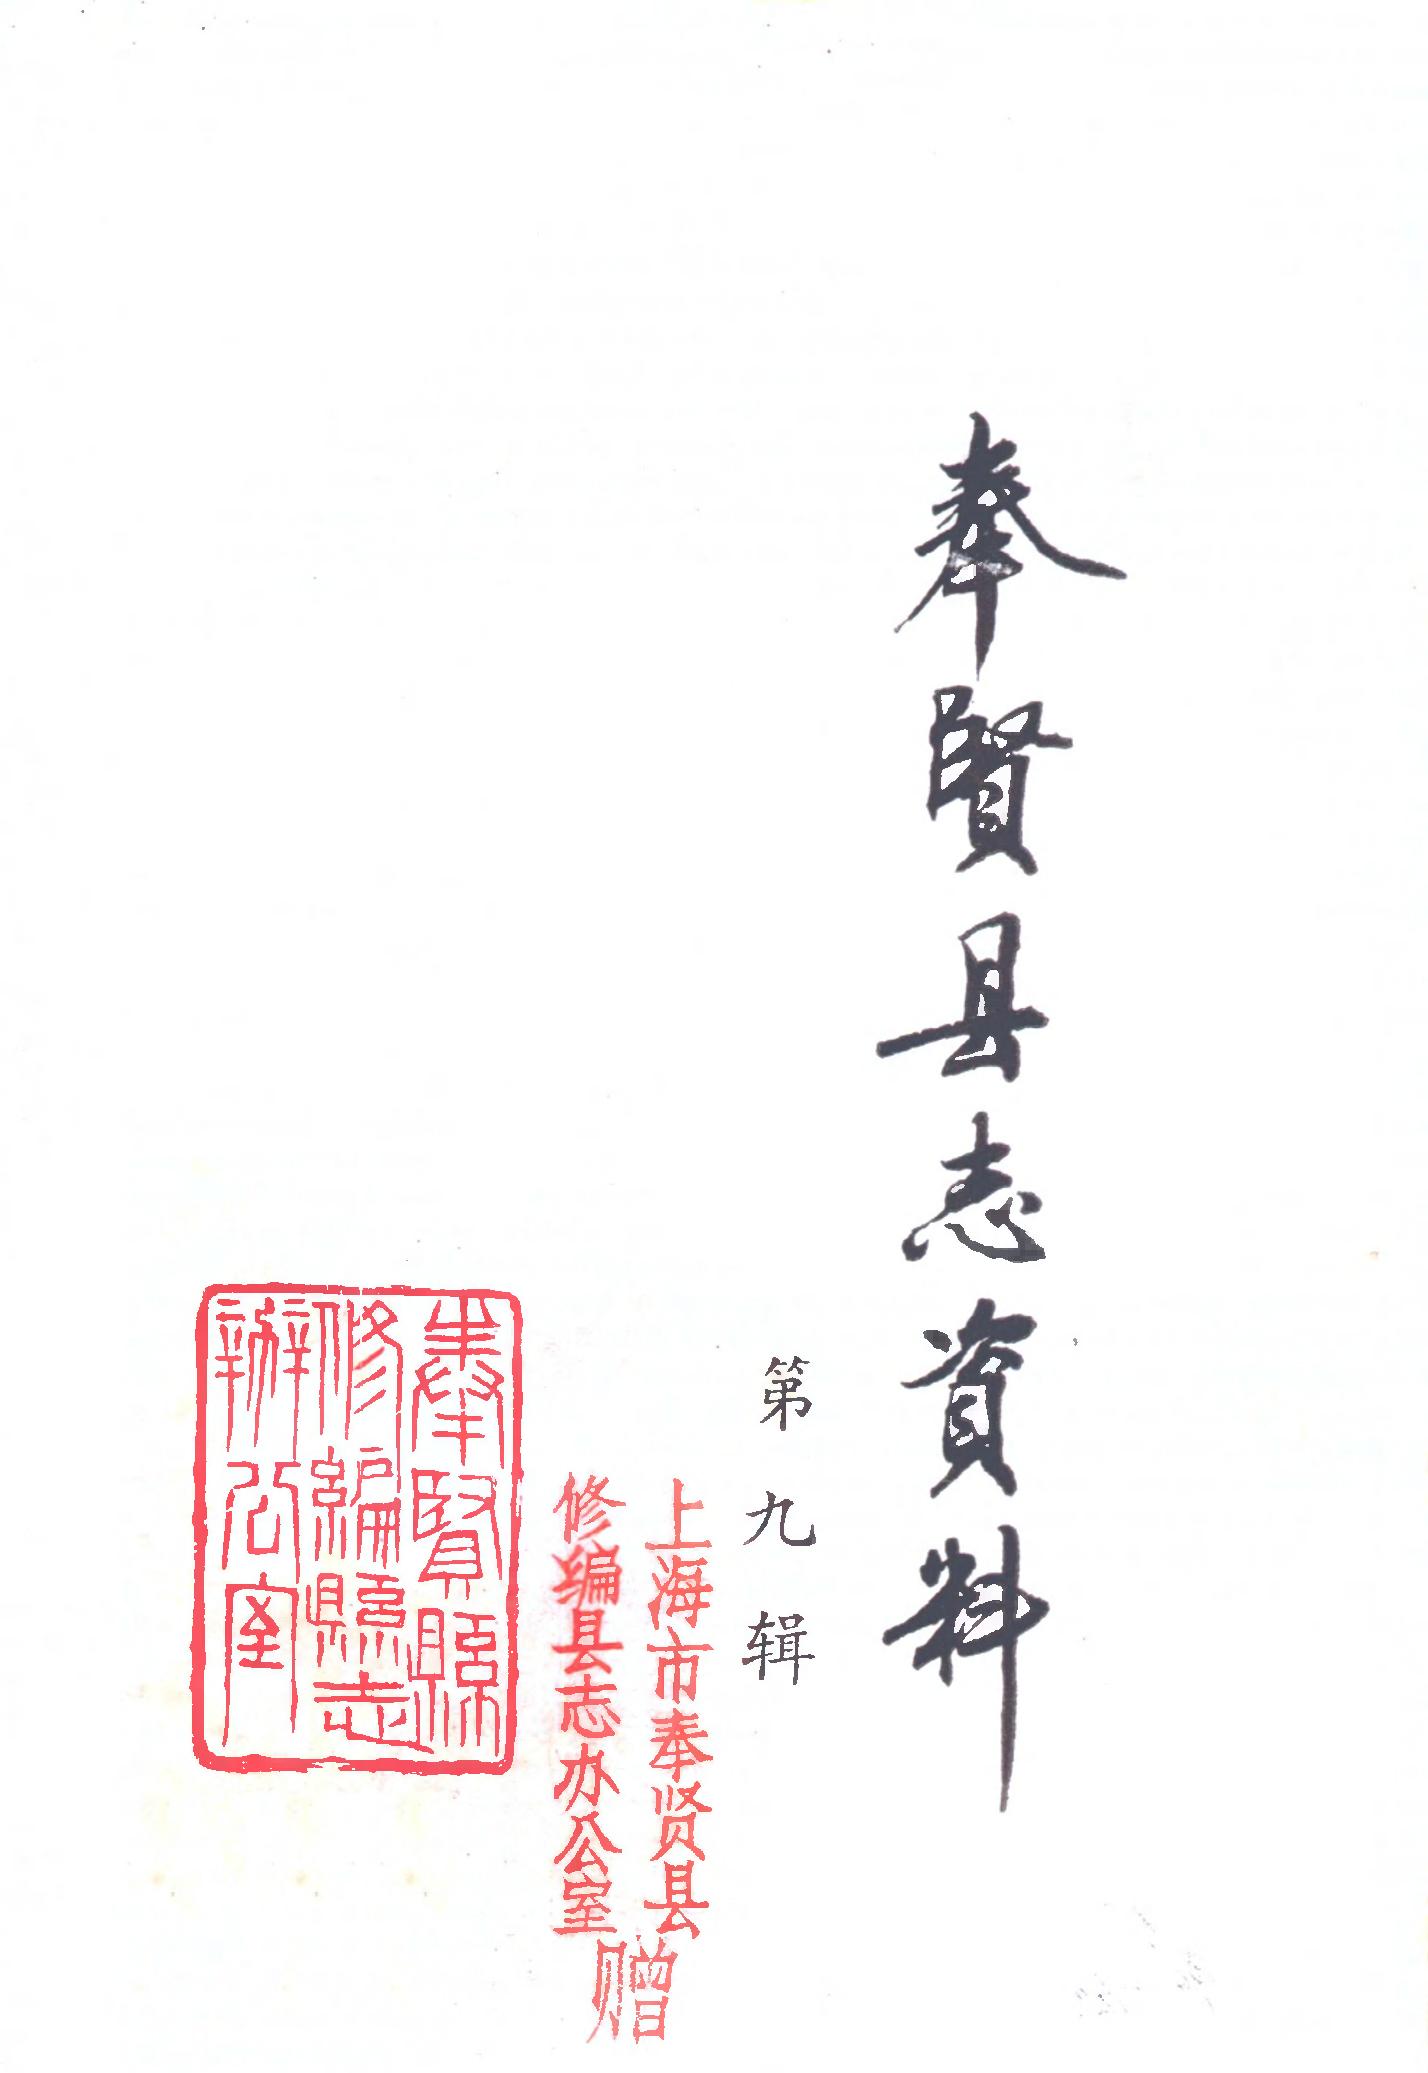 奉賢县志資料
第九辑
上海市奉贤县
修编县志办公室
赠
奉賢縣
修編縣志
辦公室